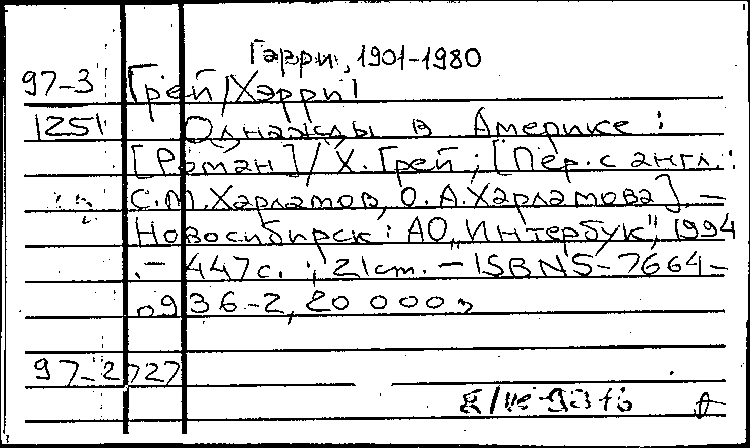 Гарри, 1901-1980
97-3 Грей/Хэрри/
1251 Однажды в Америке:
[Роман]/Х.Грей; [Пер. с англ.:
С.М.Харламов, О.А.Харламова]. –
Новосибирск: АО „Интербук", 1994
. – 447с.; 21см. – ISBN5-7664-
0936-2, 20 000э
97-2727